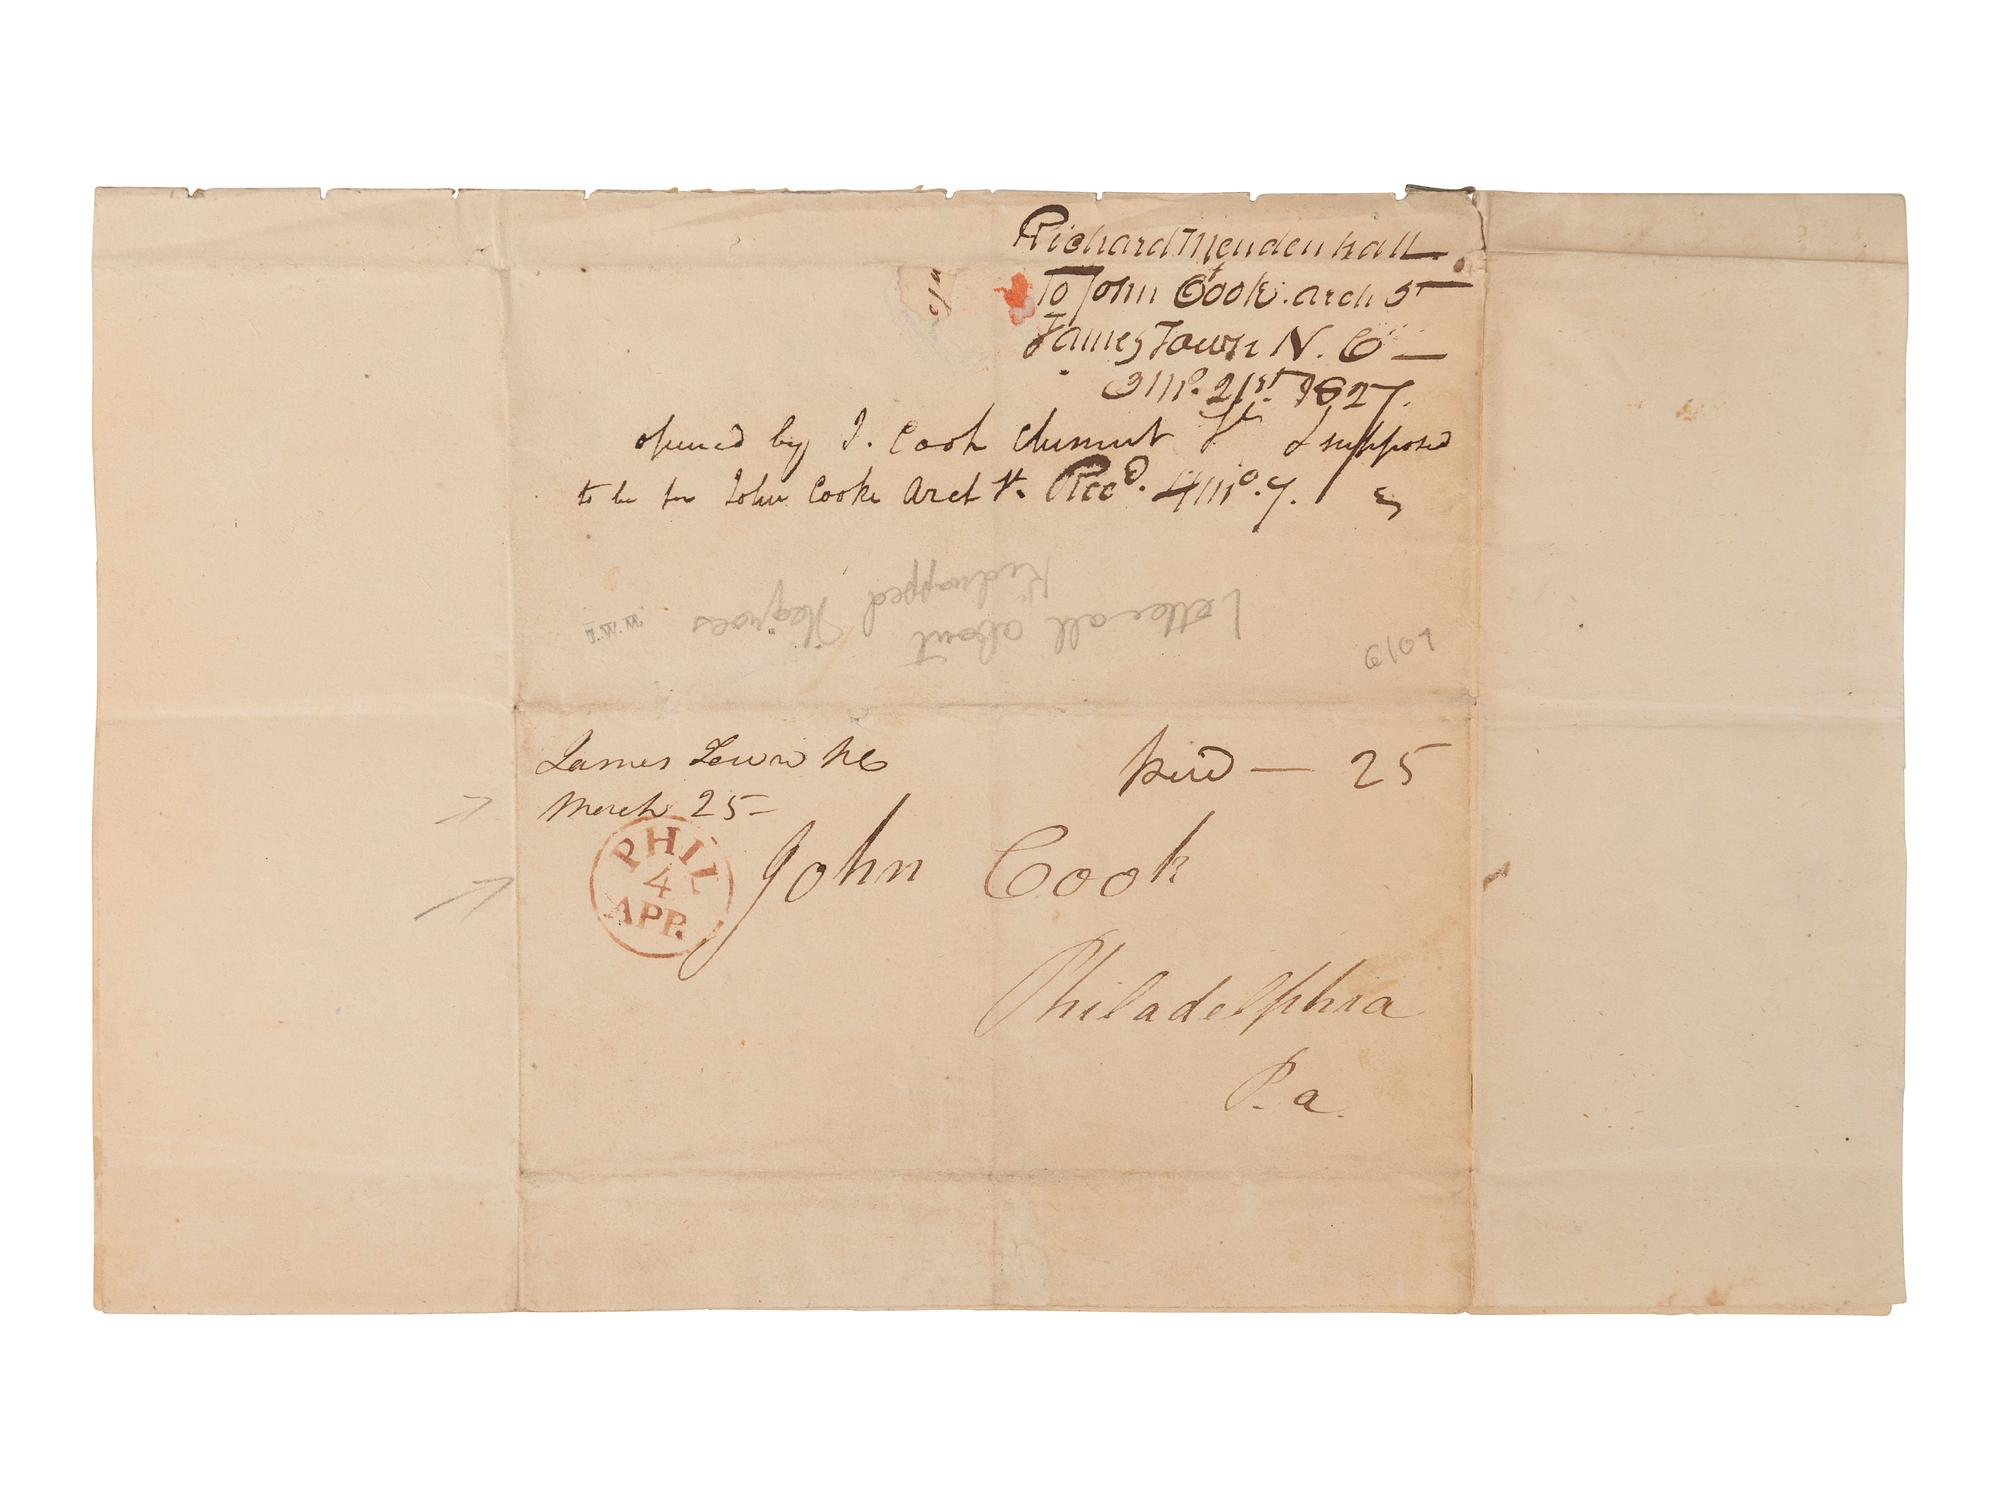 Richard Mendenhall
To John Cook. arch St
James Town N. C
3 mo. 21st. 1827.
opened by J. Cook Chesnut St & supposed
to be for John Cooke Arch St. Recd. 4 mo. 7.
Letter all about Negroes
Kidnapped
J.W.M.
James Town NC
March 25
paid — 25
PHIL
4
APR.
John Cook
Philadelphia
P.a.